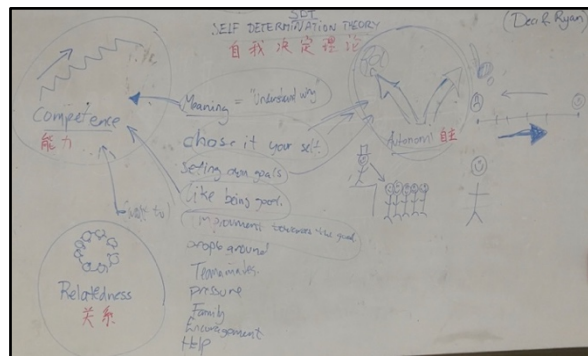 SDT
SELF DETERMINATION THEORY
自我决定理论
(Deci & Ryan)
Competence
能力
Meaning = "Understand why"
chose it your self
Setting own goals
Like being good
improvement towards the goal
people around
Teammates
pressure
Family
Encouragement
Help
Autonomy 自主
Relatedness
关系